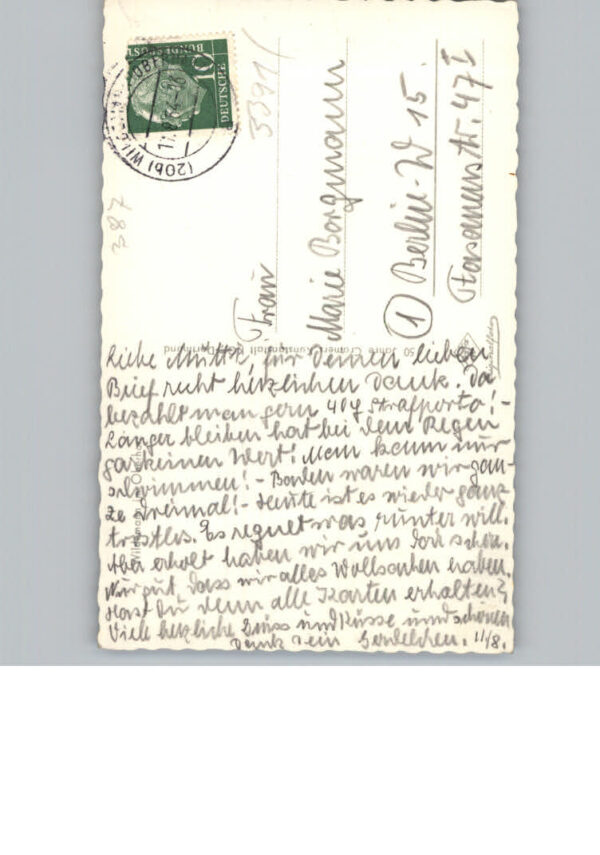 DEUTSCHE
BUNDESPOST
10
(20b) WILDEMANN
5391
387
Frau
Marie Borgmann
① Berlin-W 15.
Fasanenstr. 47 I
50 Jahre Cramers Kunstanstalt KG, Dortmund
Wildemann
Liebe Mutti, für Deinen lieben
Brief recht herzlichen Dank. Da
bezahlt man gern 40 ₰ Strafporto!-
Länger bleiben hat bei dem Regen
gar keinen Wert! Man kann nur
schwimmen! - Baden waren wir gan-
ze dreimal! - Heute ist es wieder ganz
trostlos. Es regnet was runter will.
Aber erholt haben wir uns doch schon.
Nur gut, dass wir alles Wollsachen haben.
Hast Du denn alle Karten erhalten?
Viele herzliche Grüsse und Küsse und schönen
Dank Dein 11/8.